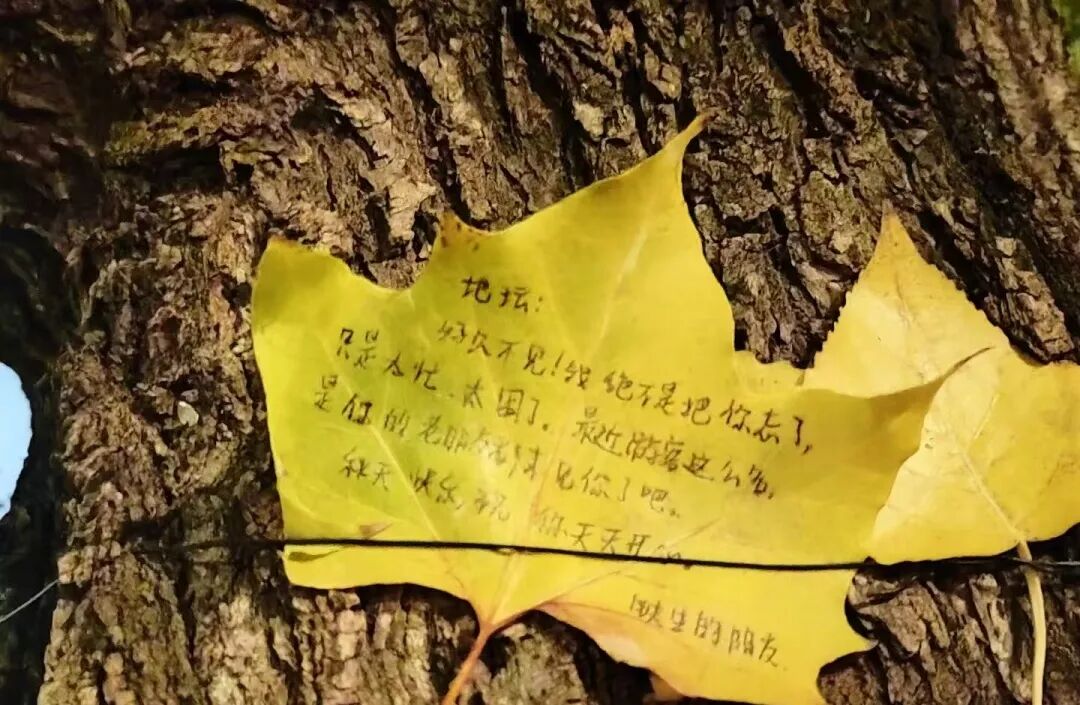 地坛:
好久不见!我绝不是把你忘了,
只是太忙、太困了。最近游客这么多,
是你的老朋来见你了吧。
秋天快乐,祝你天天开心
陌生的朋友